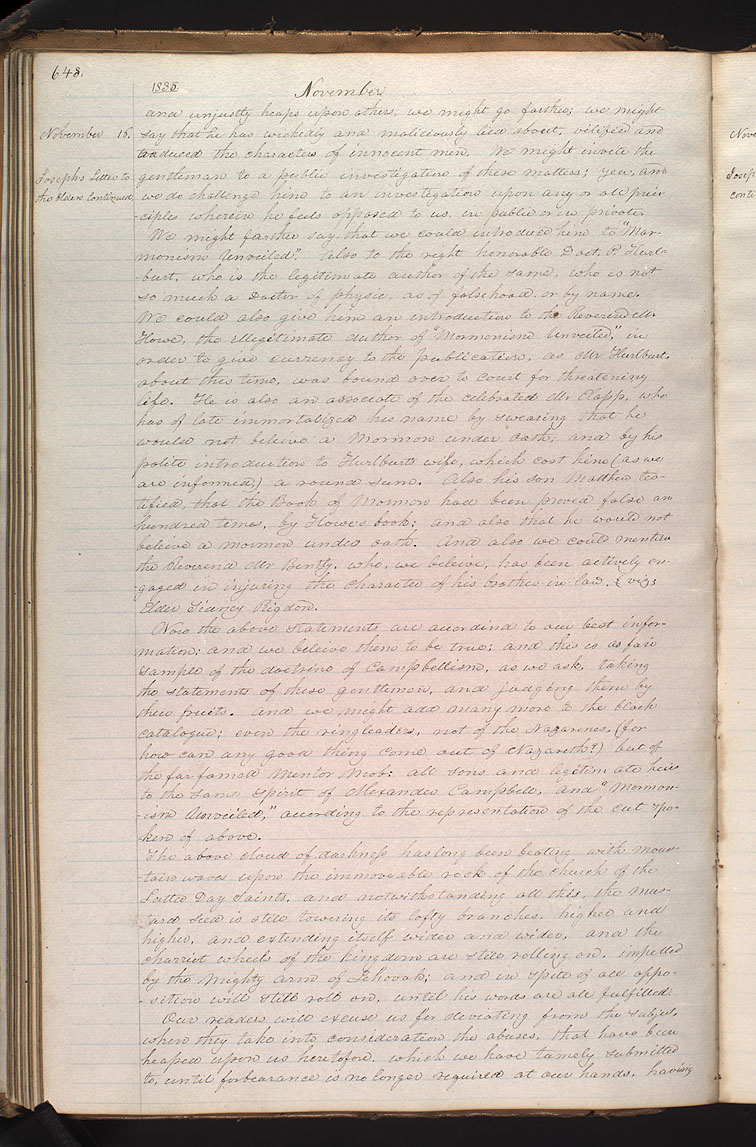 648.
1835
November
and unjustly heaps upon others, we might go farther; we might
November 15. say that he has wickedly and maliciously lied about, vilified and
traduced the characters of innocent men. We might invite the
Josephs Letter to gentleman to a public investigation of these matters; yea, and
the Elders continued we do challenge him to an investigation upon any or all prin-
-ciples wherein he feels opposed to us, in public or in private.
We might farther say, that we could introduce him to "Mor-
monism Unveiled". Also to the right honorable Doct. P. Hurl-
-burt, who is the legitimate author of the same, who is not
so much a doctor of physic, as of falsehood, or by name.
We could also give him an introduction to the Reverend Mr.
Howe, the illegitimate author of "Mormonism Unveiled," in
order to give currency to the publication, as Mr Hurlburt,
about this time, was bound over to court for threatening
life. He is also an associate of the celebrated Mr Clapp, who
has of late immortalized his name by swearing that he
would not beleive a Mormon under oath; and by his
polite introduction to Hurlburts wife, which cost him (as we
are informed,) a round sum. Also his son Matthew tes-
tified, that the Book of Mormon had been proved false an
hundred times, by Howe's book; and also that he would not
believe a mormon under oath. And also we could mention
the Reverend Mr Bently, who, we believe, has been actively en-
-gaged in injuring the character of his brother-in-law, viz;
Elder Sidney Rigdon.
Now the above statements are according to our best infor-
mation; and we beleive them to be true; and this is as fair
sample of the doctrine of Campbellism, as we ask, taking
the statements of these gentlemen, and judging them by
their fruits. And we might add many more to the black
catalogue; even the ringleaders, not of the Nazarenes, (for
how can any good thing come out of Nazareth?) but of
the far-famed Mentor Mob: all sons and legitimate heirs
to the same spirit of Alexander Campbell, and "Mormon-
-ism Unveiled," according to the representation of the cut spo-
ken of above.
The above cloud of darkness has long been beating with moun-
tain waves upon the immoveable rock of the church of the
Latter Day Saints, and notwithstanding all this, the mus-
tard seed is still towering its lofty branches, higher and
higher, and extending itself wider and wider, and the
charriot wheels of the kingdom are still rolling on, impelled
by the Mighty arm of Jehovah; and in spite of all oppo-
-sition will still roll on, until his words are all fulfilled.
Our readers will excuse us for deviating from the subject,
when they take into consideration the abuses, that have been
heaped upon us heretofore, which we have tamely submitted
to, until forbearance is no longer required at our hands, having
Nove
Josep
conti